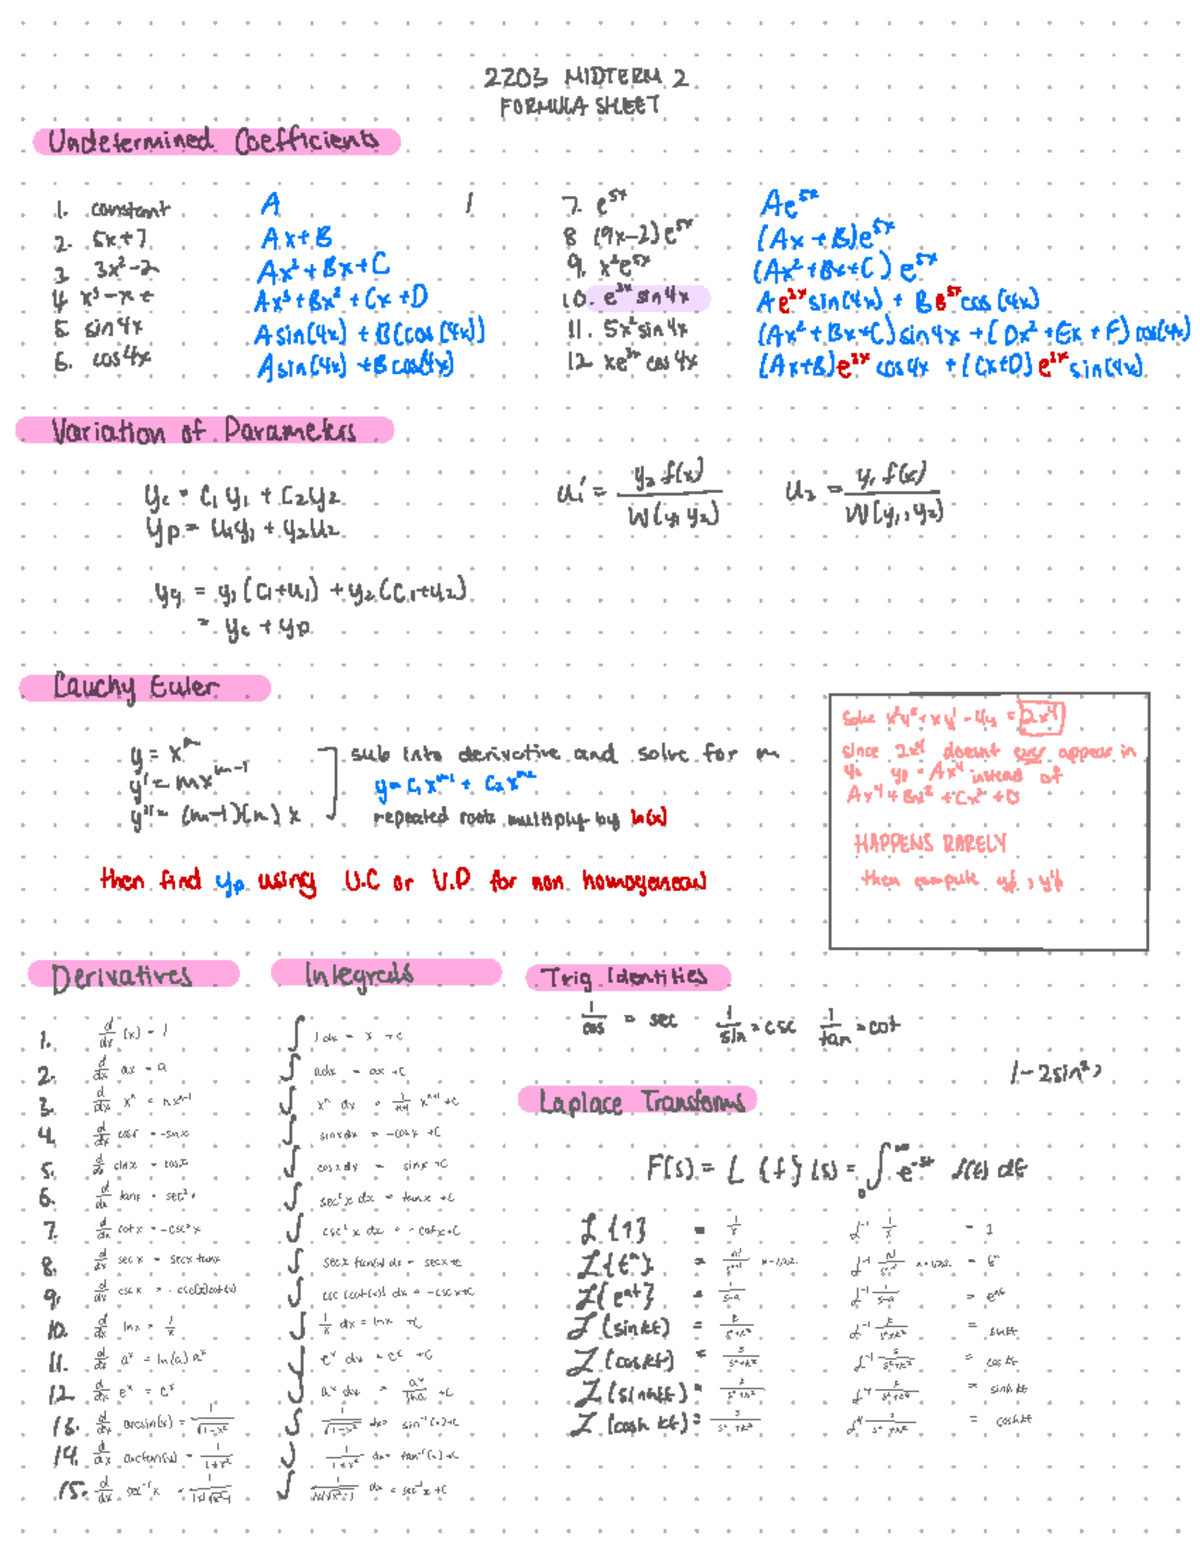 2Z03 MIDTERM 2
FORMULA SHEET
Undetermined Coefficients
1. constant A 1
2. 5x+7 Ax+B
3. 3x²-2 Ax²+Bx+C
4. x³-x+ Ax³+Bx²+Cx+D
5. sin4x Asin(4x)+B(cos(4x))
6. cos4x Asin(4x)+Bcos(4x)
7. e^5x Ae^5x
8 (9x-2)e^5x (Ax+B)e^5x
9. x²e^5x (Ax²+Bx+C)e^5x
10. e^3x sin4x Ae^3x sin(4x) + Be^5x cos(4x)
11. 5x²sin4x (Ax²+Bx+C)sin4x+(Dx²+Ex+F)cos(4x)
12 xe^3x cos4x (Ax+B)e^3x cos4x+(Cx+D)e^3x sin(4x)
Variation of Parameters
yc = C₁y₁+C₂y₂
yp = u₁y₁+y₂u₂
u₁' = y₂f(x) / W(y₁y₂) u₂ = y₁f(x) / W(y₁,y₂)
yg = y₁(C₁+u₁)+y₂(C₁+u₂)
= yc+yp
Cauchy Euler
y = x^m
y' = mx^m-1
y'' = (m-1)(m)x
sub into derivative and solve for m
y=C₁x^m1 + C₂x^m2
repeated roots multiply by ln(x)
then find yp using U.C or V.P for non homogeneous
Solve x²y''+xy'-4y = 2x⁴
since 2x⁴ doesnt ever appear in
yc yp=Ax⁴ instead of
Ax⁴+Bx²+Cx²+D
HAPPENS RARELY
then compute y'p, y''p
Derivatives
1. d/dx (x) = 1
2. d/dx ax = a
3. d/dx x^n = nx^n-1
4. d/dx cosx = -sinx
5. d/dx sinx = cosx
6. d/dx tanx = sec²x
7. d/dx cotx = -csc²x
8. d/dx secx = secx tanx
9. d/dx cscx = -csc(x)cot(x)
10. d/dx lnx = 1/x
11. d/dx a^x = ln(a)a^x
12 d/dx e^x = e^x
13. d/dx arcsin(x) = 1/√1-x²
14. d/dx arctan(x) = 1/1+x²
15. d/dx sec⁻¹x = 1/|x|√x²-1
Integrals
∫ 1dx = x +C
∫ adx = ax+C
∫ x^n dx = 1/n+1 x^n+1 +C
∫ sinxdx = -cosx +C
∫ cosxdx = sinx+C
∫ sec²x dx = tanx+C
∫ csc²x dx = -cotx+C
∫ secx tan(x) dx = secx+C
∫ csc(cot(x)) dx = -cscx+C
∫ 1/x dx = lnx +C
∫ e^x dx = e^x +C
∫ a^x dx = a^x/lna +C
∫ 1/√1-x² dx = sin⁻¹(x)+C
∫ 1/1+x² dx = tan⁻¹(x)+C
∫ 1/|x|√x²-1 dx = sec⁻¹x+C
Trig Identities
1/cos = sec 1/sin = csc 1/tan = cot
1-2sin²
Laplace Transforms
F(s) = L{f}(s) = ∫₀^∞ e^-st f(t) dt
L{1} = 1/s L⁻¹ 1/s = 1
L{t^n} = n!/s^n+1 L⁻¹ n!/s^n+1 = t^n
L{e^at} = 1/s-a L⁻¹ 1/s-a = e^at
L(sinkt) = k/s²+k² L⁻¹ k/s²+k² = sinkt
L(coskt) = s/s²+k² L⁻¹ s/s²+k² = coskt
L(sinhkt) = k/s²+k² L⁻¹ k/s²+k² = sinhkt
L(cosh kt) = s/s²+k² L⁻¹ s/s²+k² = coshkt